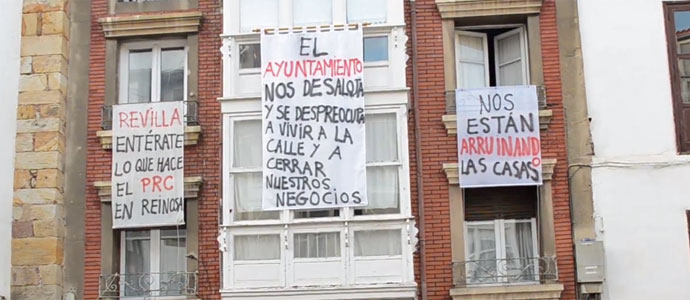 REVILLA
ENTÉRATE
LO QUE HACE
EL PRC
EN REINOSA
EL
AYUNTAMIENTO
NOS DESALOJA
Y SE DESPREOCUPA
A VIVIR A LA
CALLE Y A
CERRAR
NUESTROS
NEGOCIOS
NOS
ESTÁN
ARRUINANDO
LAS CASAS